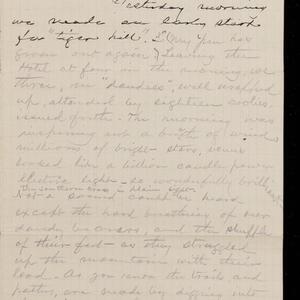 Yesterday morning
we made an early start
for "tiger hill". (My pen has
given out again) Leaving the
Hotel at four in the morning, we
three, in "dandies", well wrapped
up, attended by eighteen coolies
issued forth. The morning was
inspiring not a breath of wind
millions of bright stars, venus
looked like a billion candle power
electric light - so wonderfully brilliant
The southern cross in plain sight.
Not a sound could be heard
except the hard breathing of our
dandy bearers, and the shuffle
of their feet - as they struggled
up the mountains with their
load. As you know the trails and
paths, are made by digging into